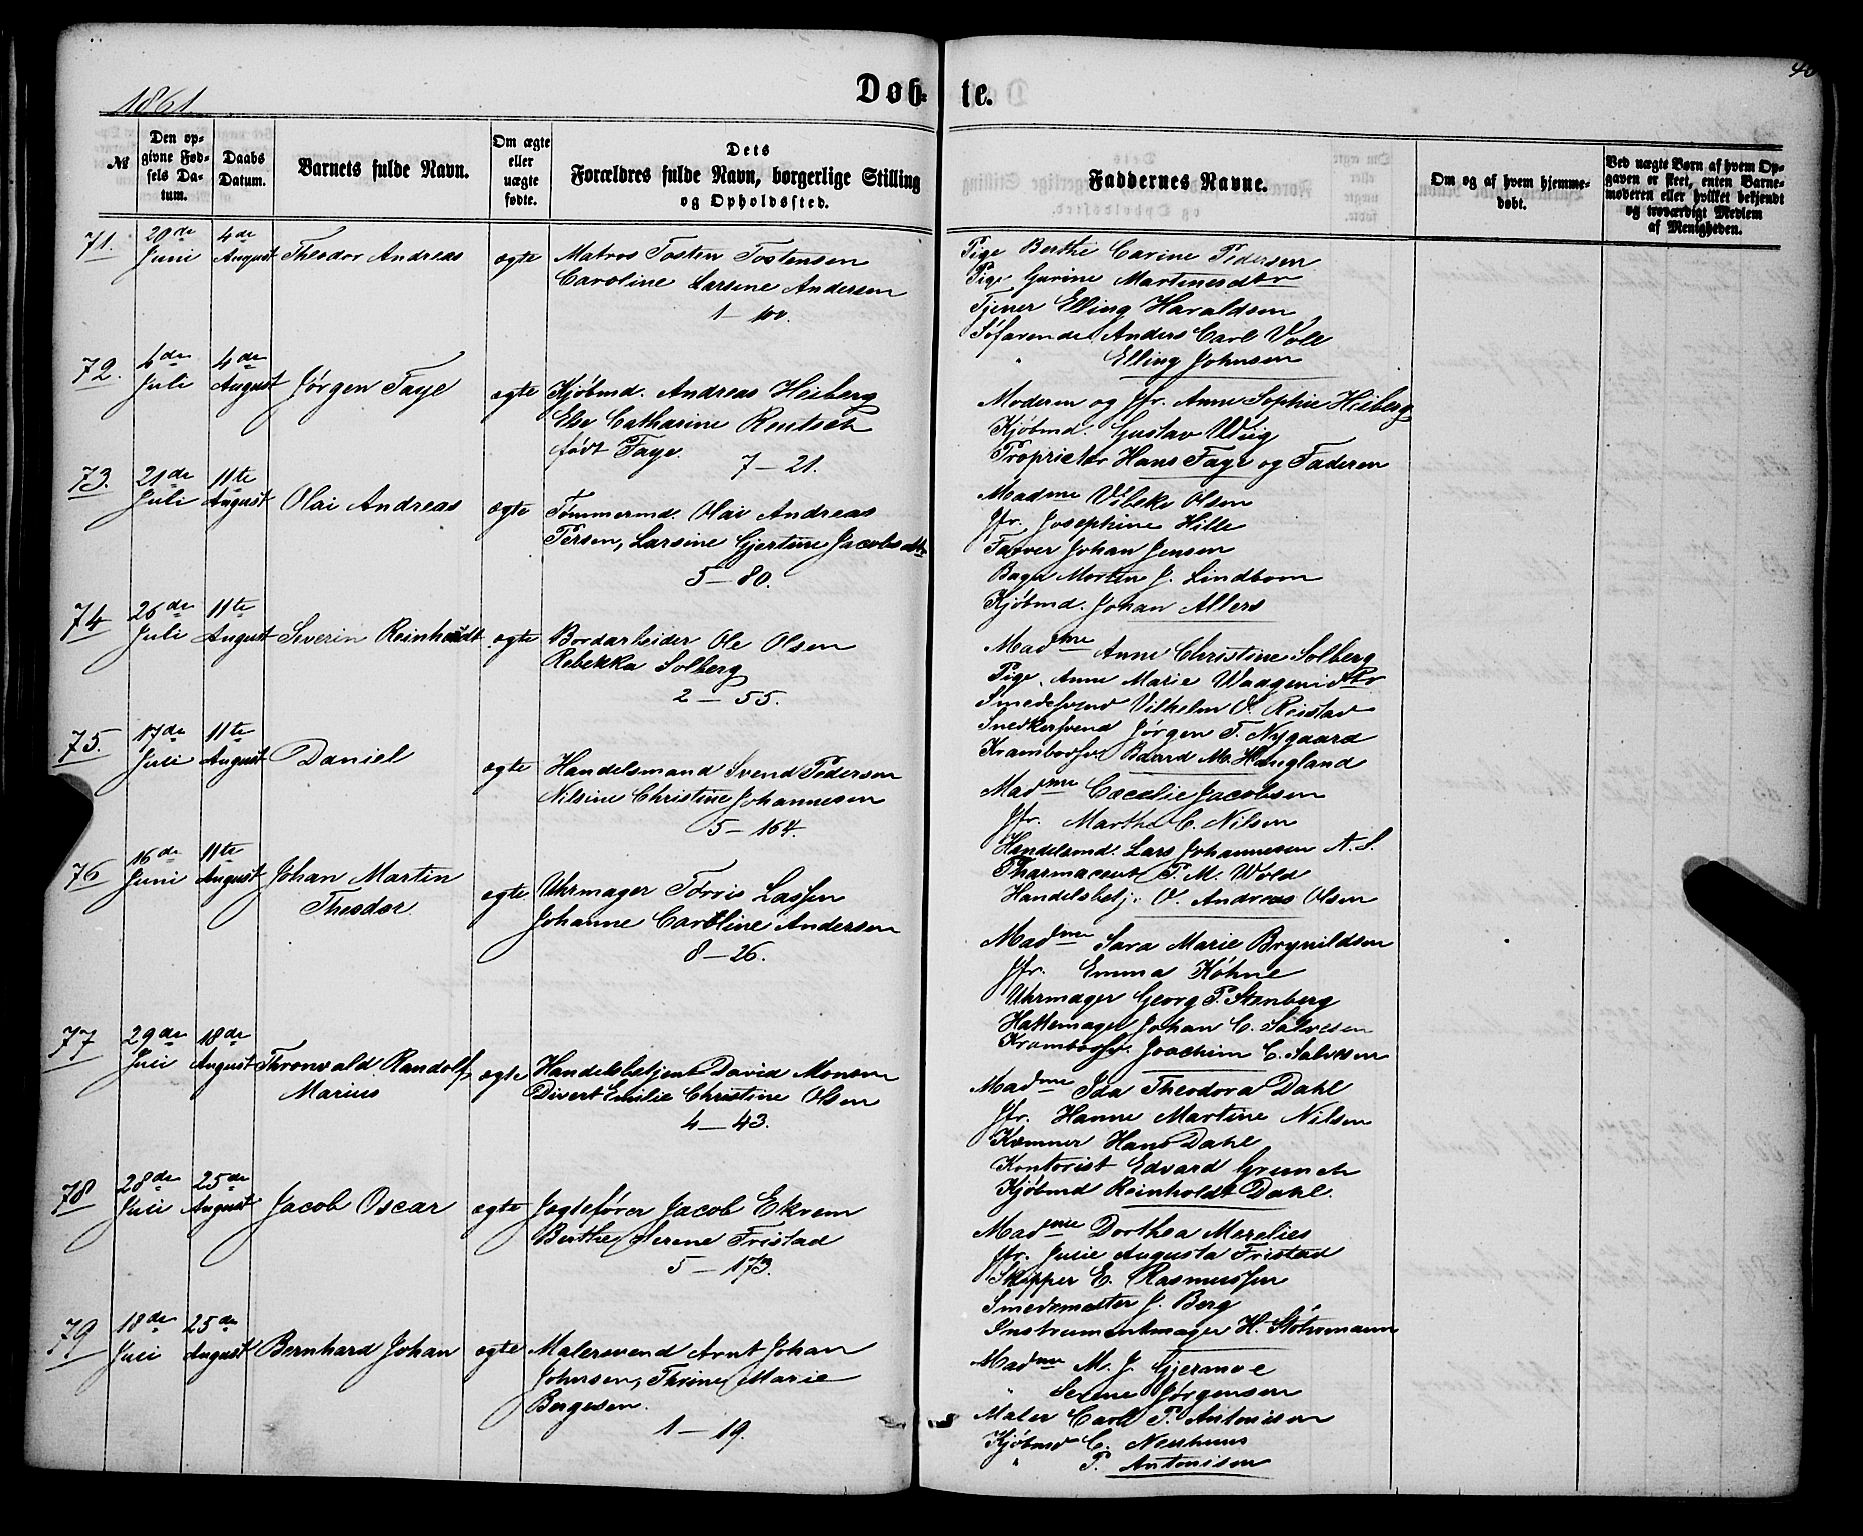 1861
Døb= te.
40
№
Den opgivne Fødsels Datum.
Daabs Datum.
Barnets fulde Navn.
Om ægte eller uægte fødte.
Dets Forældres fulde Navn, borgerlige Stilling og Opholdssted.
Faddernes Navne.
Om og af hvem hjemmedøbt.
Ved uægte Børn af hvem Opgaven er skeet, enten Barnemoderen eller hvilket bekjendt og troværdigt Medlem af Menigheden.
71. 20de Juni 4de August Theodor Andreas ægte
Matros Tosten Tostensen
Caroline Larsine Andersen
1 — 100.
Pige Berthe Carine Pedersen
Pige Gurine Martinesdtr
Tjener Elling Haraldsen
Søfarende Anders Carl Voll
" Elling Johnsen
72. 6de Juli 4de August Jørgen Faye ægte
Kjøbmd. Andreas Heiberg
Else Catharine Rentsch
født Faye.
7 — 21.
Moderen og Jfr. Anne Sophie Heiberg
Kjøbmd. Gustav Wiig
Proprietær Hans Faye og Faderen
73. 21de Juli 11te August Olai Andreas ægte
Tømmermd. Olai Andreas
Persen, Larsine Gjertine Jacobsdtr
5 — 80.
Madme Vibeke Olsen
Jfr. Josephine Hille
Farver Johan Jensen
Bager Morten J. Lindbom
Kjøbmd. Johan Allers
74 26de Juli 11te August Severin Reinhardt ægte
Bordarbeider Ole Olsen
Rebekka Solberg
2 — 55.
Madme Anne Christine Solberg
Pige Anne Marie Waageni dtr
Smedesvend Vilhelm O. Reistad
Snedkersvend Jørgen T. Nygaard
Krambodsv. Baard M. Haugland
75. 17de Juli 11te August Daniel ægte
Handelsmand Svend Pedersen
Nilsine Christine Johannesen
5 — 164.
Madme Cæcelie Jacobsen
Jfr. Marthe C. Nilsen
Handelsmd. Lars Johannesen A. S.
Pharmaceut P. M. Wold
Handelsbetj. O. Andreas Olsen
76 16de Juni 11te August Johan Martin
Theodor. ægte
Uhrmager Torris Lassen
Johanne Caroline Andersen
8 — 26.
Madme Sara Marie Brynildsen
Jfr. Emma Köhne
Uhrmager Georg P. Stenberg
Hattemager Johan C. Salvesen
Krambodsv. Joachim C. Salvesen
77 29de Juli 18de August Thronvald Randolf
Marius ægte
Handelsbetjent David Monsen
Divert Emilie Christine Olsen
4 — 43.
Madme Ida Theodora Dahl
Jfr. Hanne Martine Nilsen
Kæmner Hans Dahl
Kontorist Edvard Grunch
Kjøbmd Reinholdt Dahl.
78 28de Juli 25de August Jacob Oscar ægte
Jagtefører Jacob Ekrem
Berthe Serene Fristad
5 — 173.
Madme Dorthea Marelies
Jfr. Julie Augusta Fristad
Skipper E. Rasmussen
Smedemester J. Berg
Instrumentmager H. Störmann
79 18de Juli 25de August Bernhard Johan ægte
Malersvend Arnt Johan
Johnsen, Thrine Marie
Børgesen.
1 — 19.
Madme M. J. Gjeranoe
" Serene Jørgensen
Maler Carl P. Antonisen
Kjøbmd C. Neuhuus
" P. Antonisen